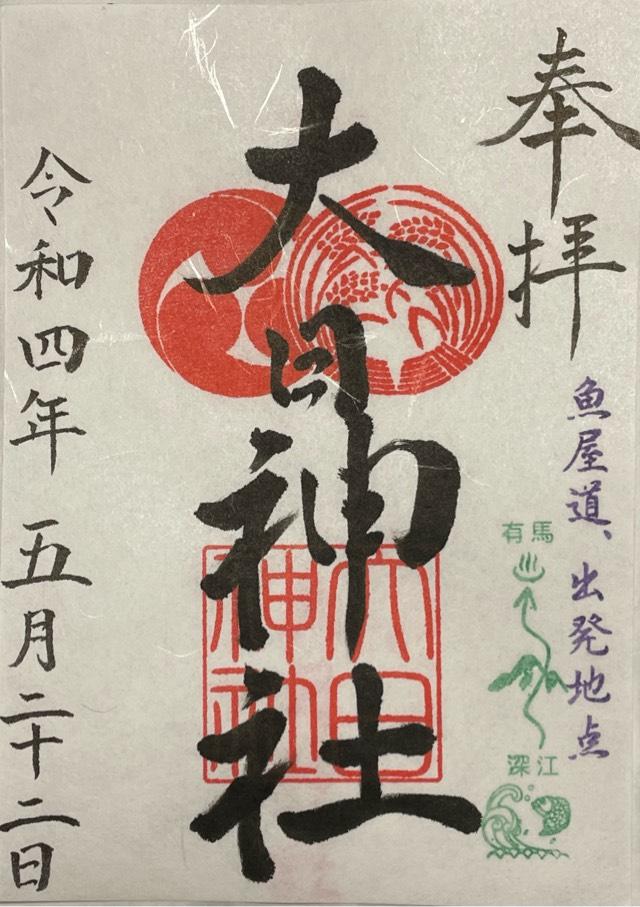 奉拝
魚屋道、出発地点
有馬
深江
大日神社
大日神社
令和四年五月二十二日